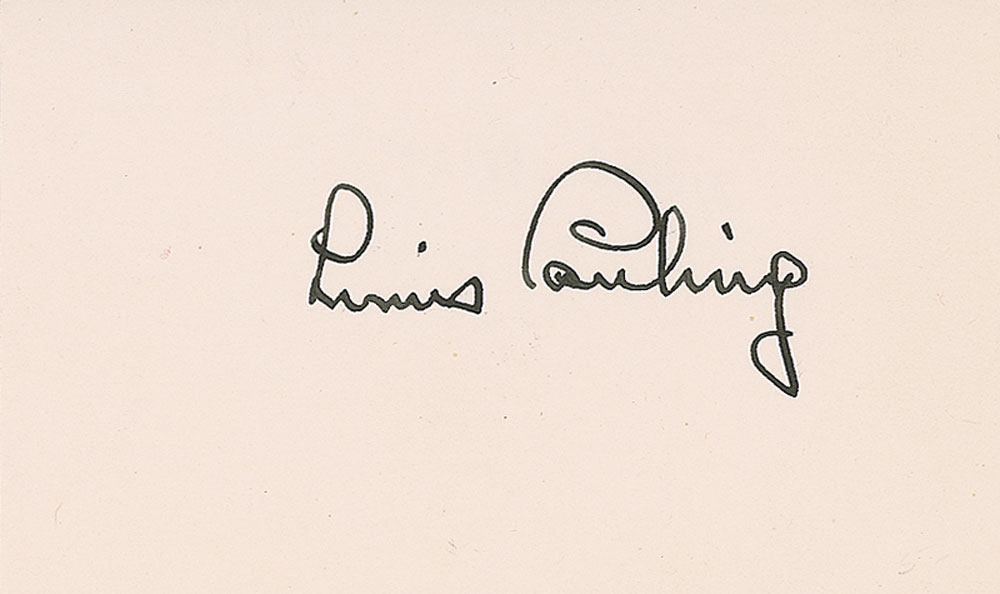 Linus Pauling